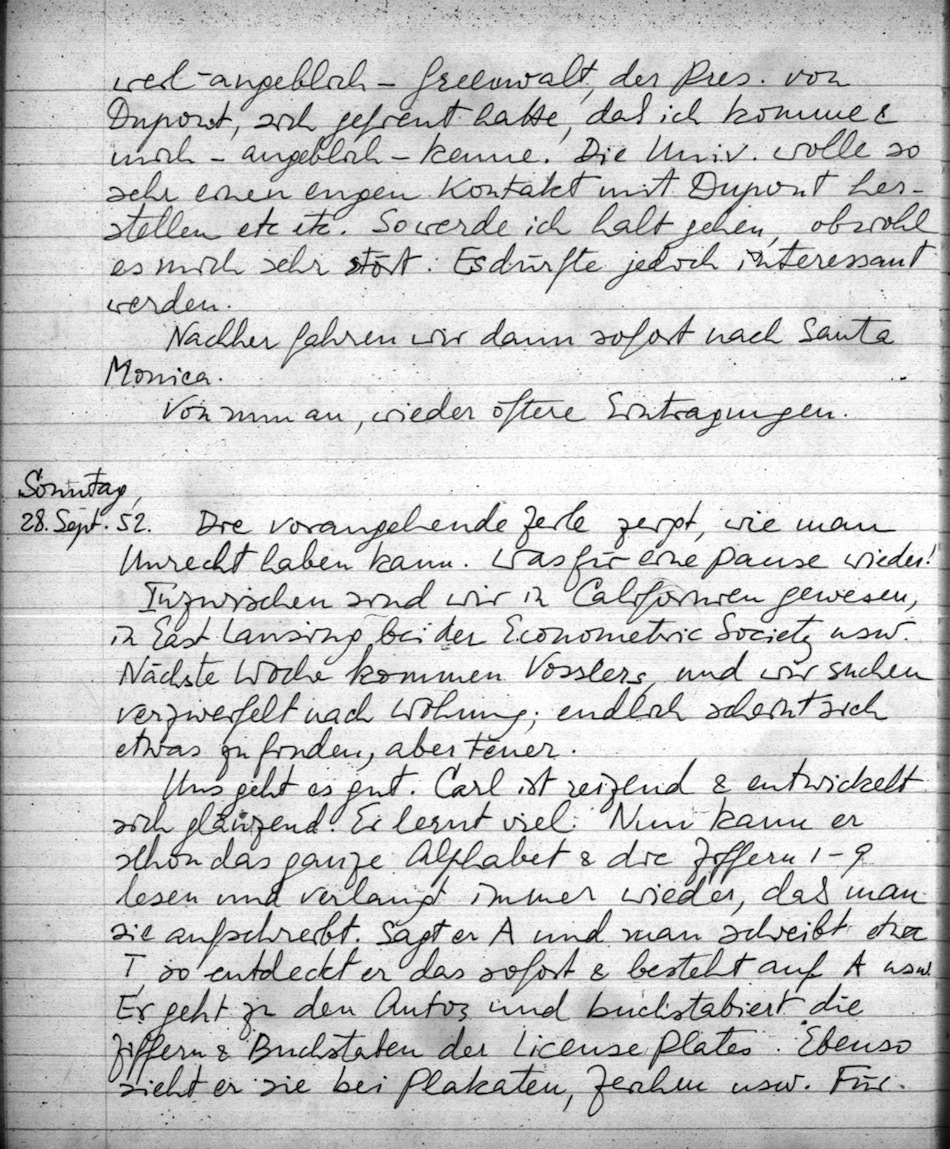 weil - angeblich - Greenwalt, der Pres. von
Dupont, sich gefreut hatte, daß ich komme &
mich - angeblich - kenne. Die Univ. wolle so
sehr einen engen Kontakt mit Dupont her-
stellen etc etc. So werde ich halt gehen, obwohl
es mich sehr stört. Es dürfte jedoch interessant
werden.
Nachher fahren wir dann sofort nach Santa
Monica.
Von nun an, wieder öftere Eintragungen.
Sonntag,
28. Sept. 52. Die vorangehende Zeile zeigt, wie man
Unrecht haben kann. Was für eine Pause wieder!
Inzwischen sind wir in Californien gewesen,
in East Lansing bei der Econometric Society usw.
Nächste Woche kommen Vosslers, und wir suchen
verzweifelt nach Wohnung; endlich scheint sich
etwas zu finden, aber teuer.
Uns geht es gut. Carl ist reizend & entwickelt
sich glänzend. Er lernt viel. Nun kann er
schon das ganze Alphabet & die Ziffern 1-9
lesen und verlangt immer wieder, daß man
sie aufschreibt. Sagt er A und man schreibt etwa
T, so entdeckt er das sofort & besteht auf A usw.
Er geht zu den Autos und buchstabiert die
Ziffern & Buchstaben der License Plates. Ebenso
sieht er sie bei Plakaten, Zeichen usw. Für